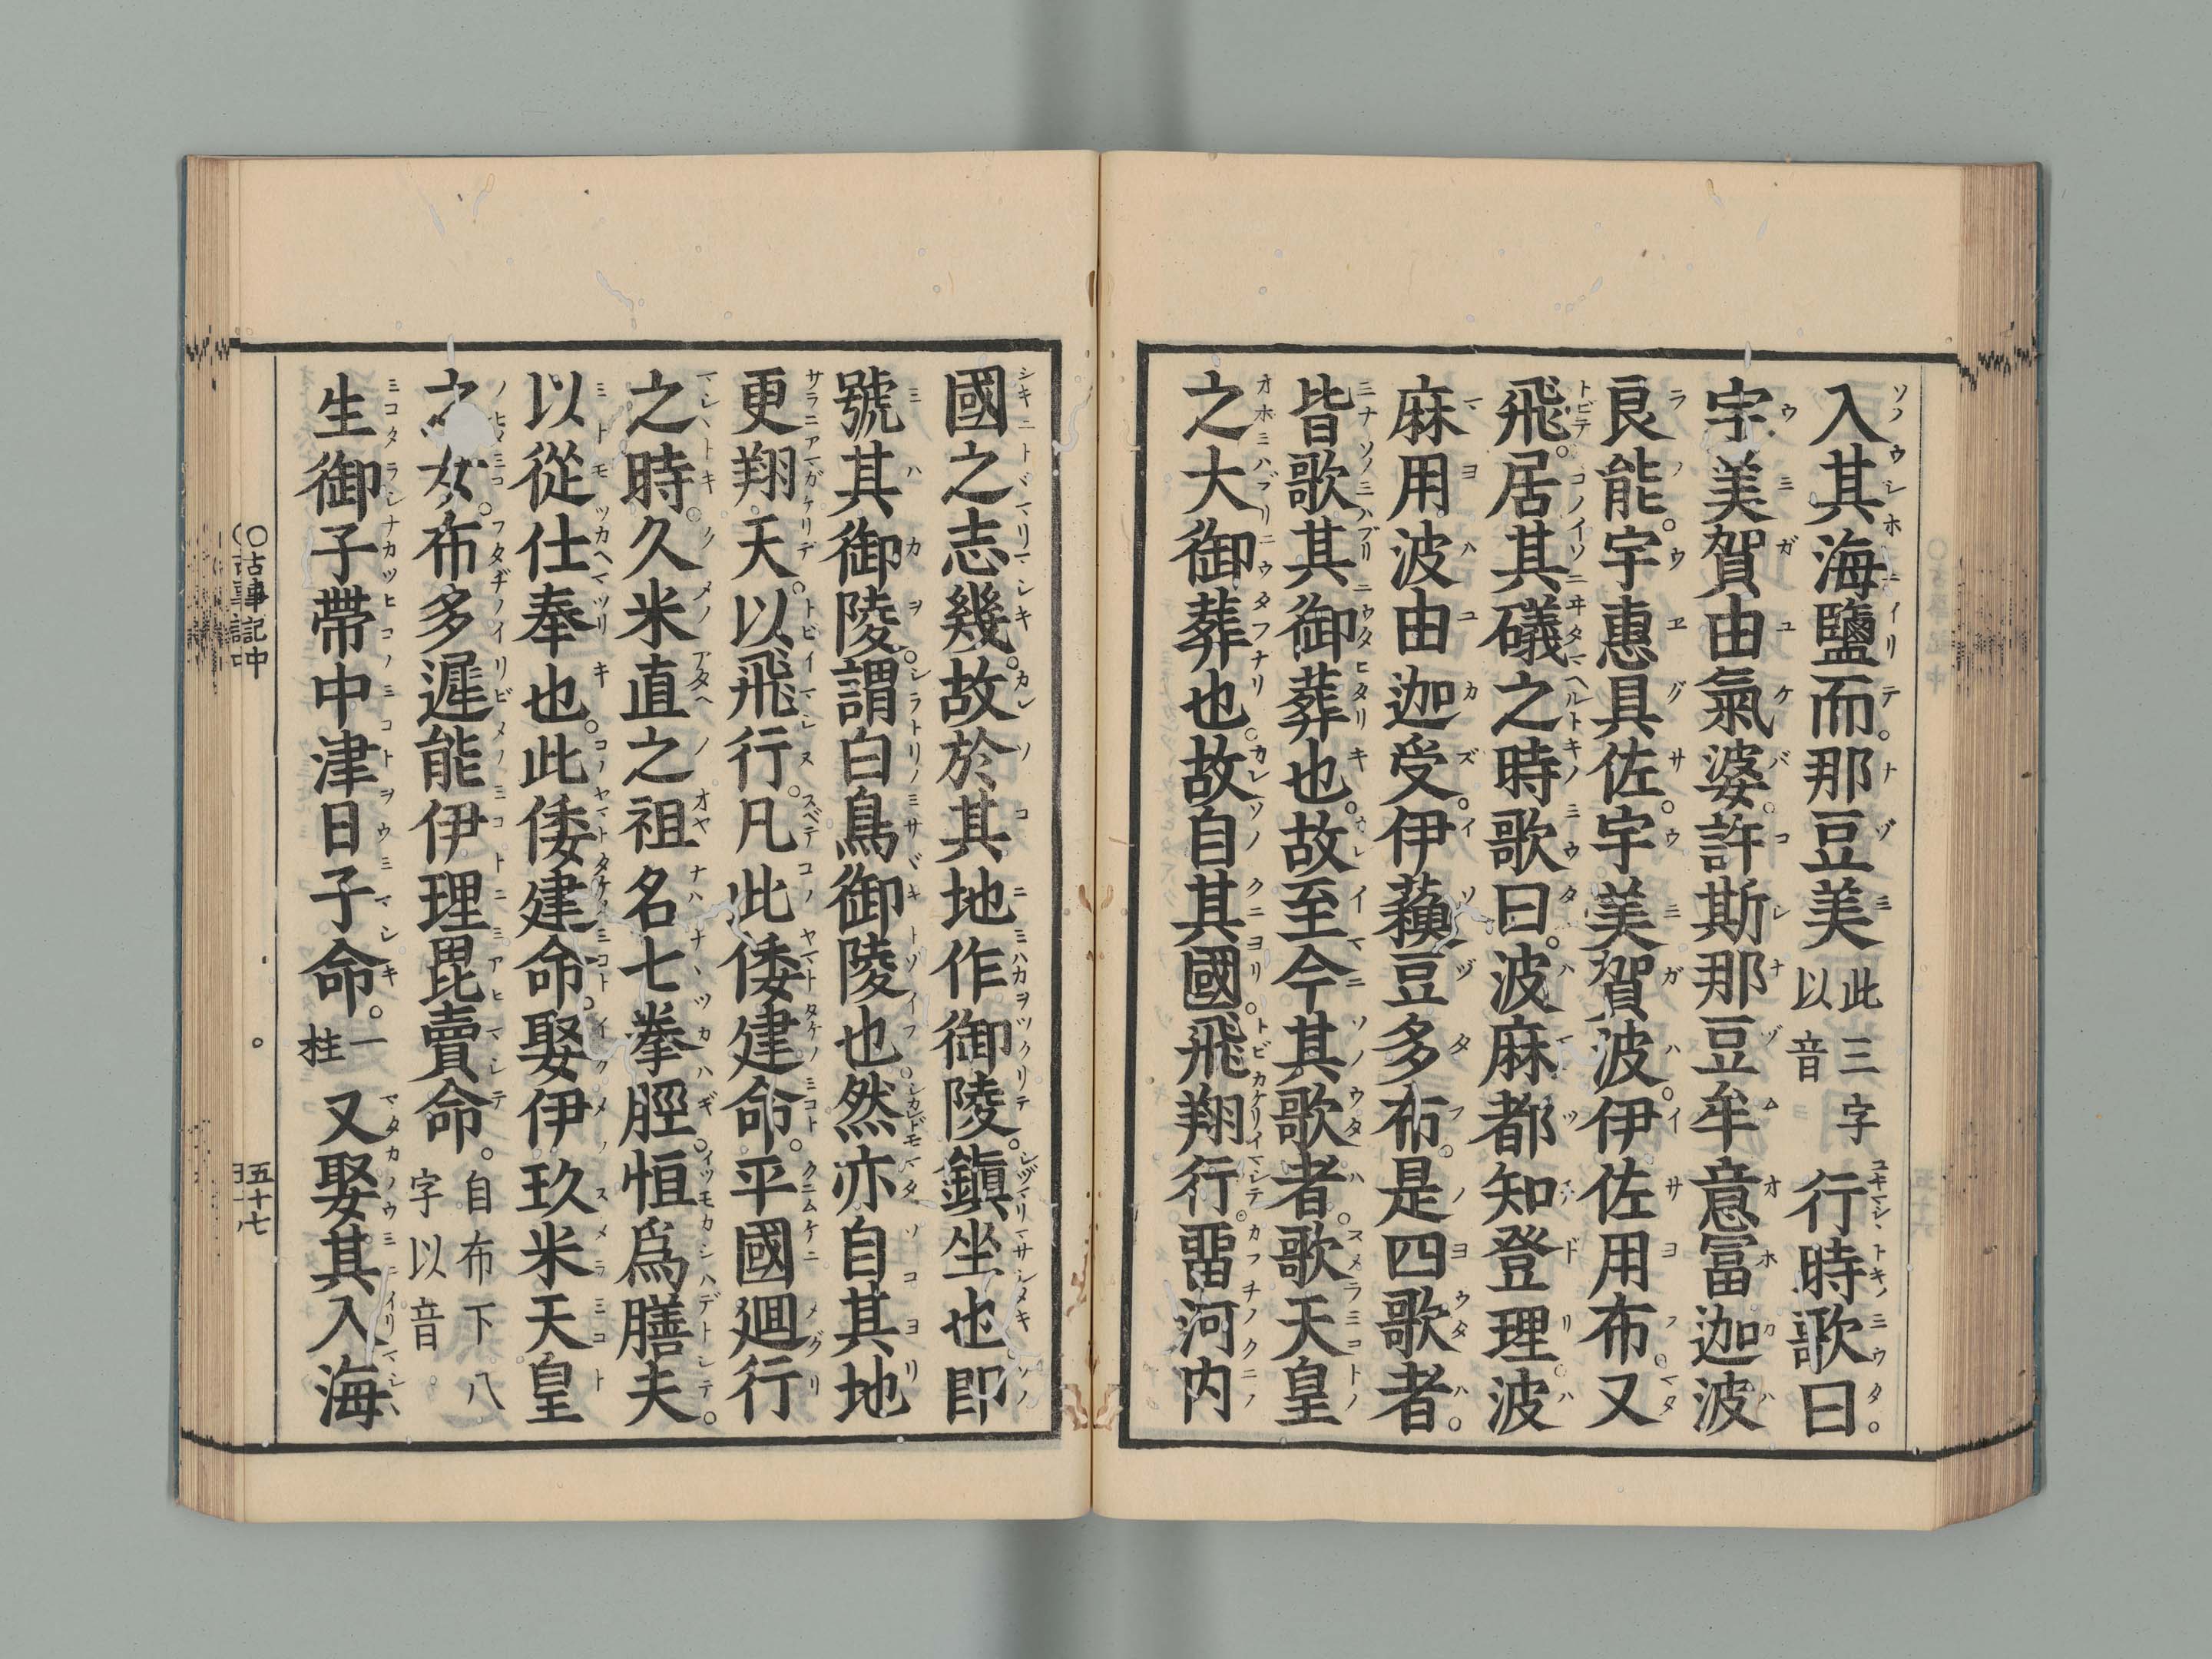 入其海鹽而那豆美此三字以音行時歌曰
宇美賀由氣婆許斯那豆牟意富迦波
良能宇惠具佐宇美賀波伊佐用布又
飛居其礒之時歌曰波麻都知登理波
麻用波由迦受伊蘓豆多布是四歌者
皆歌其御葬也故至今其歌者歌天皇
之大御葬也故自其國飛翔行畱河内
國之志幾故於其地作御陵鎮坐也即
號其御陵謂白鳥御陵也然亦自其地
更翔天以飛行凡此倭建命平國廻行
之時久米直之祖名七拳脛恒爲膳夫
以從仕奉也此倭建命娶伊玖米天皇
之女布多遲能伊理毘賣命自布下八字以音
生御子帶中津日子命一柱又娶其入海
〇古事記中
五十七